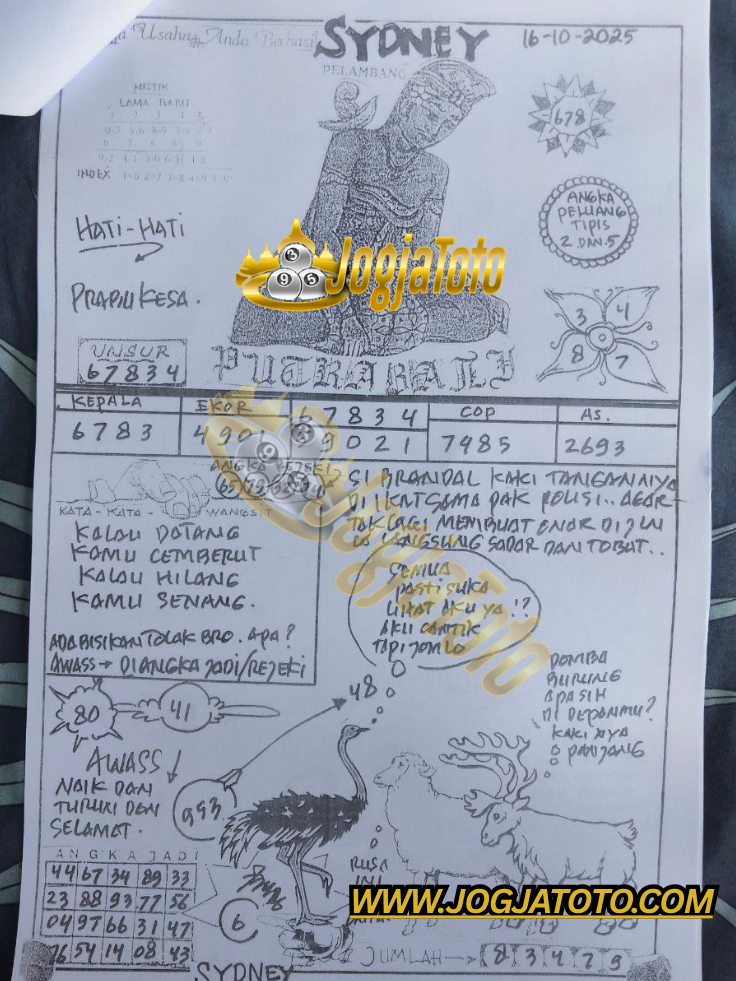 Usaha Anda Berhasil
SYDNEY
16-10-2025
PELAMBANG
MISTIK
LAMA BARU
INDEX
678
ANGKA
PELUANG
TIPIS
2 DAN 5
HATI-HATI
JogjaToto
3 4
8 7
UNSUR
67834
PUTRA BALI
KEPALA
EKOR
67834
COP
AS.
6783
4901
9021
7485
2693
ANGKA
KATA - KATA - WANGSIT
KALAU DATANG
KAMU CEMBERUT
KALAU HILANG
KAMU SENANG.
ADA BISIKAN TOLAK BRO. APA?
AWASS → DIANGKA JADI/REJEKI
SI BRANDAL KAKI TANGANNIYA
DI IKAT SAMA PAK POLISI.. AGAR
TAK LAGI MEMBUAT ONAR
LANGSUNG SADAR DAN TOBAT..
SEMUA
PASTI SUKA
LIHAT AKU YA !?
AKU CANTIK
TAPI JOMLO
JogjaToto
DOMBA
BURUNG
APA SIH
DI DEPANMU?
KAKI NYA
PANJANG
48
80
41
AWASS!
NAIK DAN
TURUN DEN
SELAMAT.
993
ANGKA JADI
44 67 34 89 33
23 88 93 77 56
04 97 66 31 47
76 54 14 08 43
6
RUSA
INI
WWW.JOGJATOTO.COM
JUMLAH → 8 3 4 7 9
SYDNEY